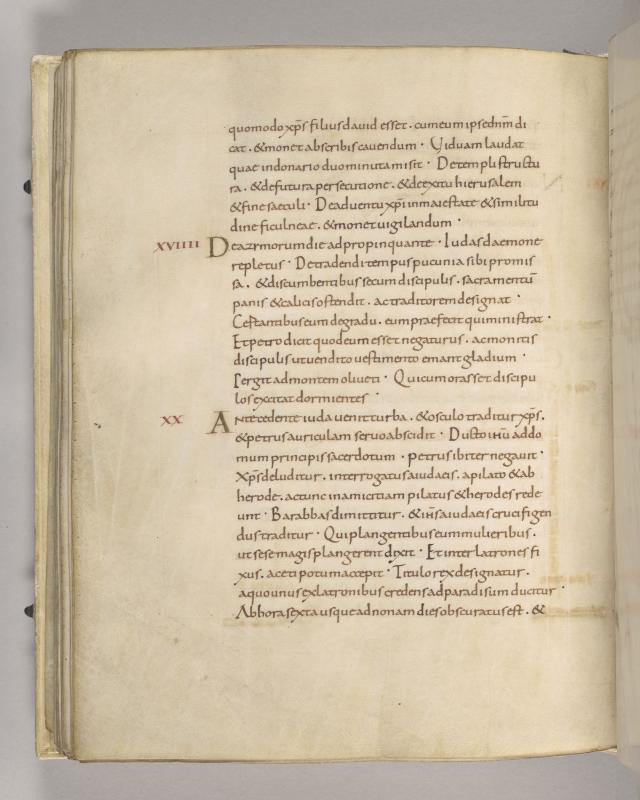 quomodo xp̄s filius david esset · cum eum ipse dn̄m di
cat · & monet ab scribis cavendum · Viduam laudat
quae in donario duo minuta misit · De templi structu
ra · & de futura persecutione · & de exitu hierusalem
& fine saeculi · De adventu xp̄i in maiestate & similitu
dine ficulneae · & monet vigilandum ·
XVIIII De azymorum die adpropinquante · Iudas daemone
repletus · De tradendi tempus pucunia sibi promis
sa · & discumbentibus secum discipulis · sacramentū
panis & calicis ostendit · ac traditorem designat ·
Certantibus eum de gradu · eum praefecit qui ministrat ·
Et petro dicit quod eum esset negaturus · ac monitis
discipulis ut vendito vestimento emant gladium ·
Pergit ad montem oliveti · Qui cum orasset discipu
los excitat dormientes ·
XX Antecedente iuda venit turba · & osculo traditur xp̄s ·
& petrus auriculam servo abscidit · Ducto ih̄u ad do
mum principis sacerdotum · petrus ibi ter negavit ·
Xp̄s deluditur · interrogatus a iudaeis · a pilato & ab
herode · ac tunc inamicitiam pilatus & herodes rede
unt · Barabbas dimittitur · & ih̄s a iudaeis crucifigen
dus traditur · Qui plangentibus eum mulieribus ·
ut sese magis plangerent dixit · Et inter latrones fi
xus · aceti potum accepit · Titulo rex designatur ·
a quo unus ex latronibus credens ad paradisum ducitur ·
Ab hora sexta usque ad nonam dies obscuratus est · &